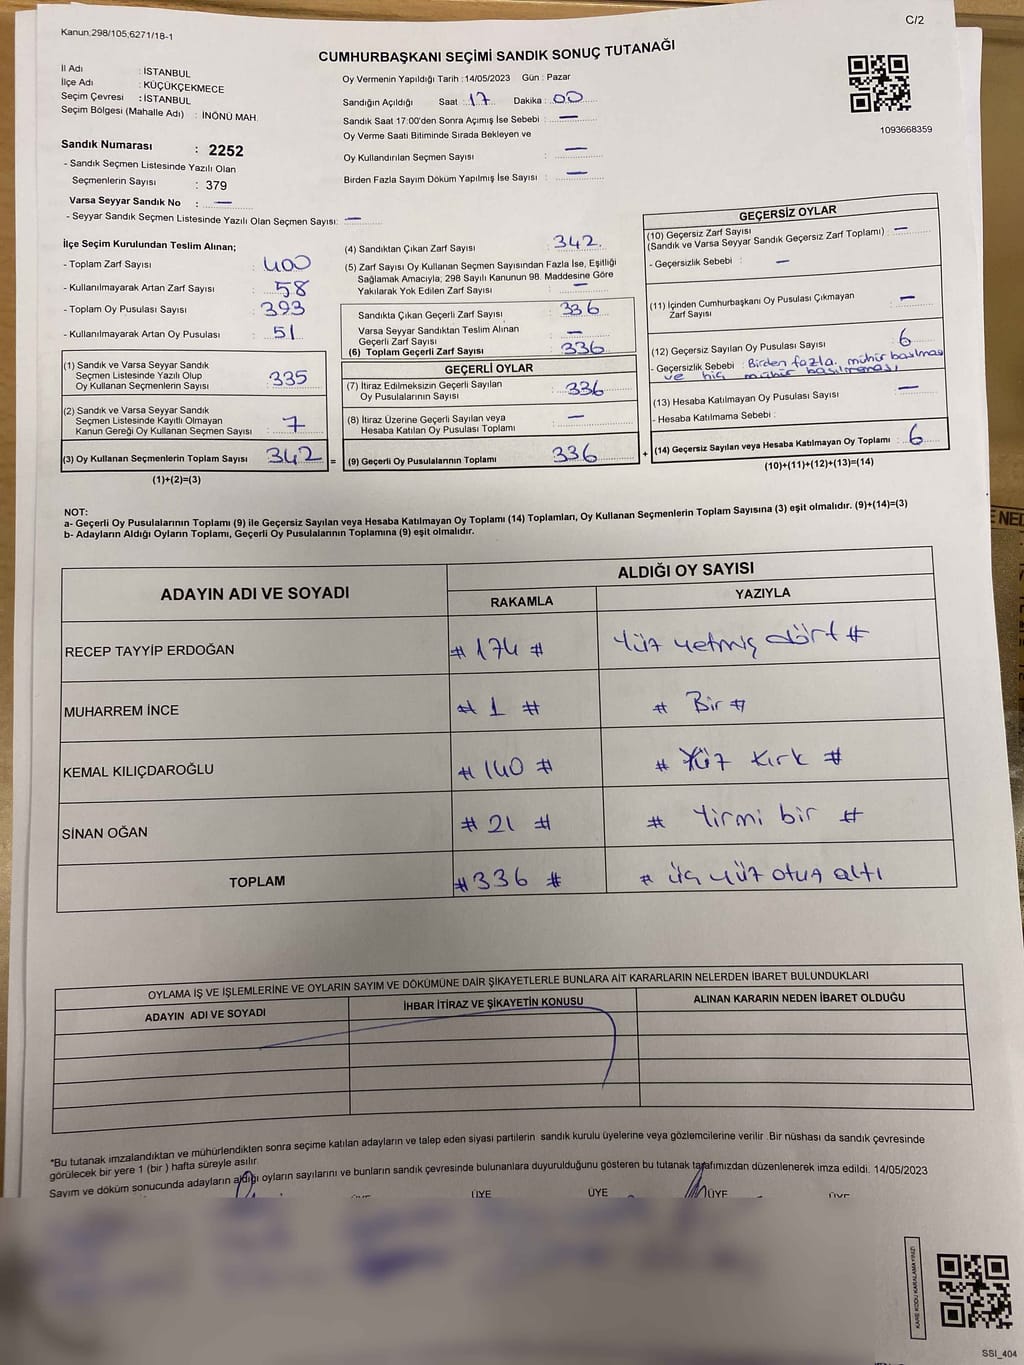 Kanun;298/105;6271/18-1
C/2
CUMHURBAŞKANI SEÇİMİ SANDIK SONUÇ TUTANAĞI
İl Adı : İSTANBUL
İlçe Adı : KÜÇÜKÇEKMECE
Seçim Çevresi : İSTANBUL
Seçim Bölgesi (Mahalle Adı) : İNÖNÜ MAH.
Sandık Numarası : 2252
- Sandık Seçmen Listesinde Yazılı Olan
Seçmenlerin Sayısı : 379
Varsa Seyyar Sandık No : —
- Seyyar Sandık Seçmen Listesinde Yazılı Olan Seçmen Sayısı: —
Oy Vermenin Yapıldığı Tarih :14/05/2023 Gün : Pazar
Sandığın Açıldığı Saat : 17 Dakika : 00
Sandık Saat 17:00'den Sonra Açımış İse Sebebi : —
Oy Verme Saati Bitiminde Sırada Bekleyen ve
Oy Kullandırılan Seçmen Sayısı : —
Birden Fazla Sayım Döküm Yapılmış İse Sayısı : —
1093668359
İlçe Seçim Kurulundan Teslim Alınan;
- Toplam Zarf Sayısı : 400
- Kullanılmayarak Artan Zarf Sayısı : 58
- Toplam Oy Pusulası Sayısı : 393
- Kullanılmayarak Artan Oy Pusulası : 51
(1) Sandık ve Varsa Seyyar Sandık
Seçmen Listesinde Yazılı Olup
Oy Kullanan Seçmenlerin Sayısı : 335
(2) Sandık ve Varsa Seyyar Sandık
Seçmen Listesinde Kayıtlı Olmayan
Kanun Gereği Oy Kullanan Seçmen Sayısı : 7
(3) Oy Kullanan Seçmenlerin Toplam Sayısı : 342 =
(1)+(2)=(3)
(4) Sandıktan Çıkan Zarf Sayısı : 342
(5) Zarf Sayısı Oy Kullanan Seçmen Sayısından Fazla İse, Eşitliği
Sağlamak Amacıyla, 298 Sayılı Kanunun 98. Maddesine Göre
Yakılarak Yok Edilen Zarf Sayısı : —
Sandıkta Çıkan Geçerli Zarf Sayısı : 336
Varsa Seyyar Sandıktan Teslim Alınan
Geçerli Zarf Sayısı : —
(6) Toplam Geçerli Zarf Sayısı : 336
GEÇERLİ OYLAR
(7) İtiraz Edilmeksizin Geçerli Sayılan
Oy Pusulalarının Sayısı : 336
(8) İtiraz Üzerine Geçerli Sayılan veya
Hesaba Katılan Oy Pusulası Toplamı : —
(9) Geçerli Oy Pusulalarının Toplamı : 336 +
GEÇERSİZ OYLAR
(10) Geçersiz Zarf Sayısı
(Sandık ve Varsa Seyyar Sandık Geçersiz Zarf Toplamı) : —
- Geçersizlik Sebebi : —
(11) İçinden Cumhurbaşkanı Oy Pusulası Çıkmayan
Zarf Sayısı : —
(12) Geçersiz Sayılan Oy Pusulası Sayısı : 6
- Geçersizlik Sebebi : Birden fazla mühür basılması
ve hiç mühür basılmaması
(13) Hesaba Katılmayan Oy Pusulası Sayısı : —
- Hesaba Katılmama Sebebi :
(14) Geçersiz Sayılan veya Hesaba Katılmayan Oy Toplamı : 6
(10)+(11)+(12)+(13)=(14)
NOT:
a- Geçerli Oy Pusulalarının Toplamı (9) ile Geçersiz Sayılan veya Hesaba Katılmayan Oy Toplamı (14) Toplamları, Oy Kullanan Seçmenlerin Toplam Sayısına (3) eşit olmalıdır. (9)+(14)=(3)
b- Adayların Aldığı Oyların Toplamı, Geçerli Oy Pusulalarının Toplamına (9) eşit olmalıdır.
ADAYIN ADI VE SOYADI
ALDIĞI OY SAYISI
RAKAMLA YAZIYLA
RECEP TAYYİP ERDOĞAN # 174 # Yüz yetmiş dört #
MUHARREM İNCE # 1 # # Bir #
KEMAL KILIÇDAROĞLU # 140 # # Yüz kırk #
SİNAN OĞAN # 21 # # Yirmi bir #
TOPLAM # 336 # # üç yüz otuz altı
OYLAMA İŞ VE İŞLEMLERİNE VE OYLARIN SAYIM VE DÖKÜMÜNE DAİR ŞİKAYETLERLE BUNLARA AİT KARARLARIN NELERDEN İBARET BULUNDUKLARI
ADAYIN ADI VE SOYADI İHBAR İTİRAZ VE ŞİKAYETİN KONUSU ALINAN KARARIN NEDEN İBARET OLDUĞU
*Bu tutanak imzalandıktan ve mühürlendikten sonra seçime katılan adayların ve talep eden siyasi partilerin sandık kurulu üyelerine veya gözlemcilerine verilir .Bir nüshası da sandık çevresinde
görülecek bir yere 1 (bir ) hafta süreyle asılır.
Sayım ve döküm sonucunda adayların aldığı oyların sayılarını ve bunların sandık çevresinde bulunanlara duyurulduğunu gösteren bu tutanak tarafımızdan düzenlenerek imza edildi. 14/05/2023
ÜYE ÜYE ÜYE ÜYE
KARE KODU KARALAMAYINIZ!
SSI_404